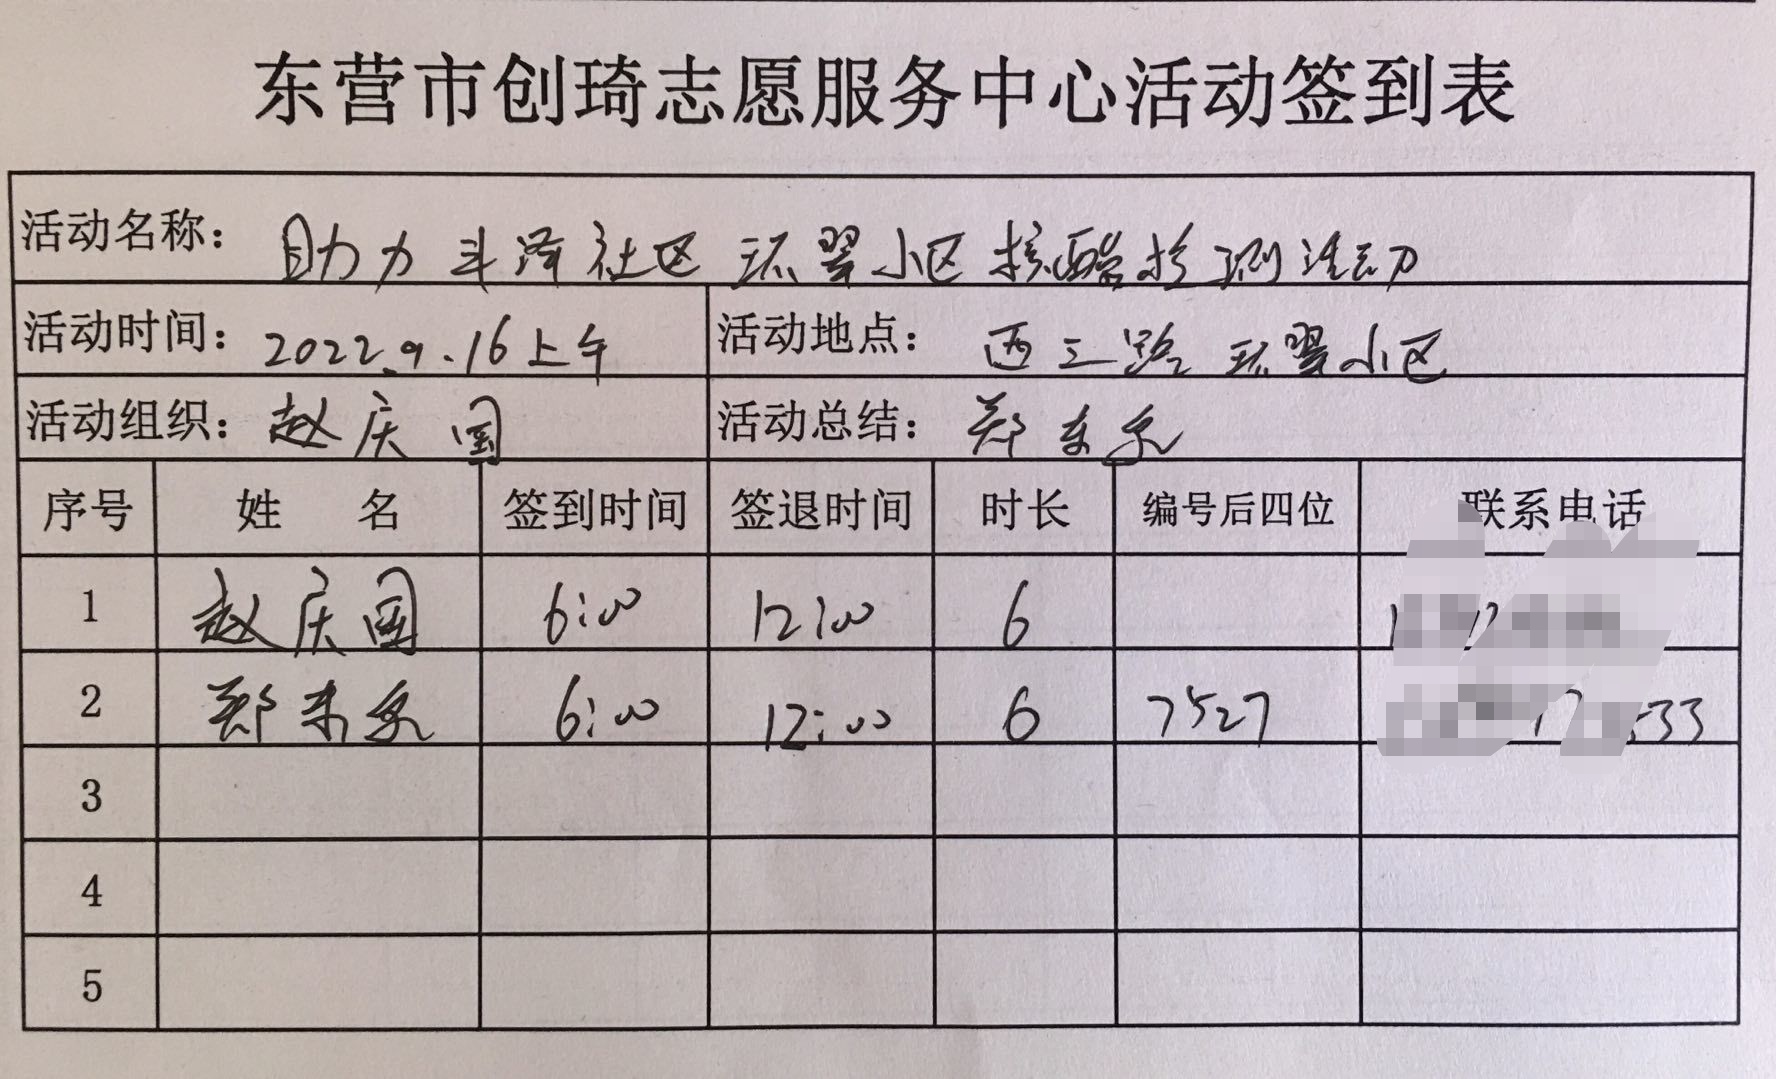 东营市创琦志愿服务中心活动签到表
活动名称： 助力斗泽社区环翠小区核酸检测活动
活动时间： 2022.9.16上午 活动地点： 西三路环翠小区
活动组织： 赵庆国 活动总结： 郑东
序号 姓 名 签到时间 签退时间 时长 编号后四位 联系电话
1 赵庆国 6:00 12:00 6
2 郑东 6:00 12:00 6 7527 33
3
4
5